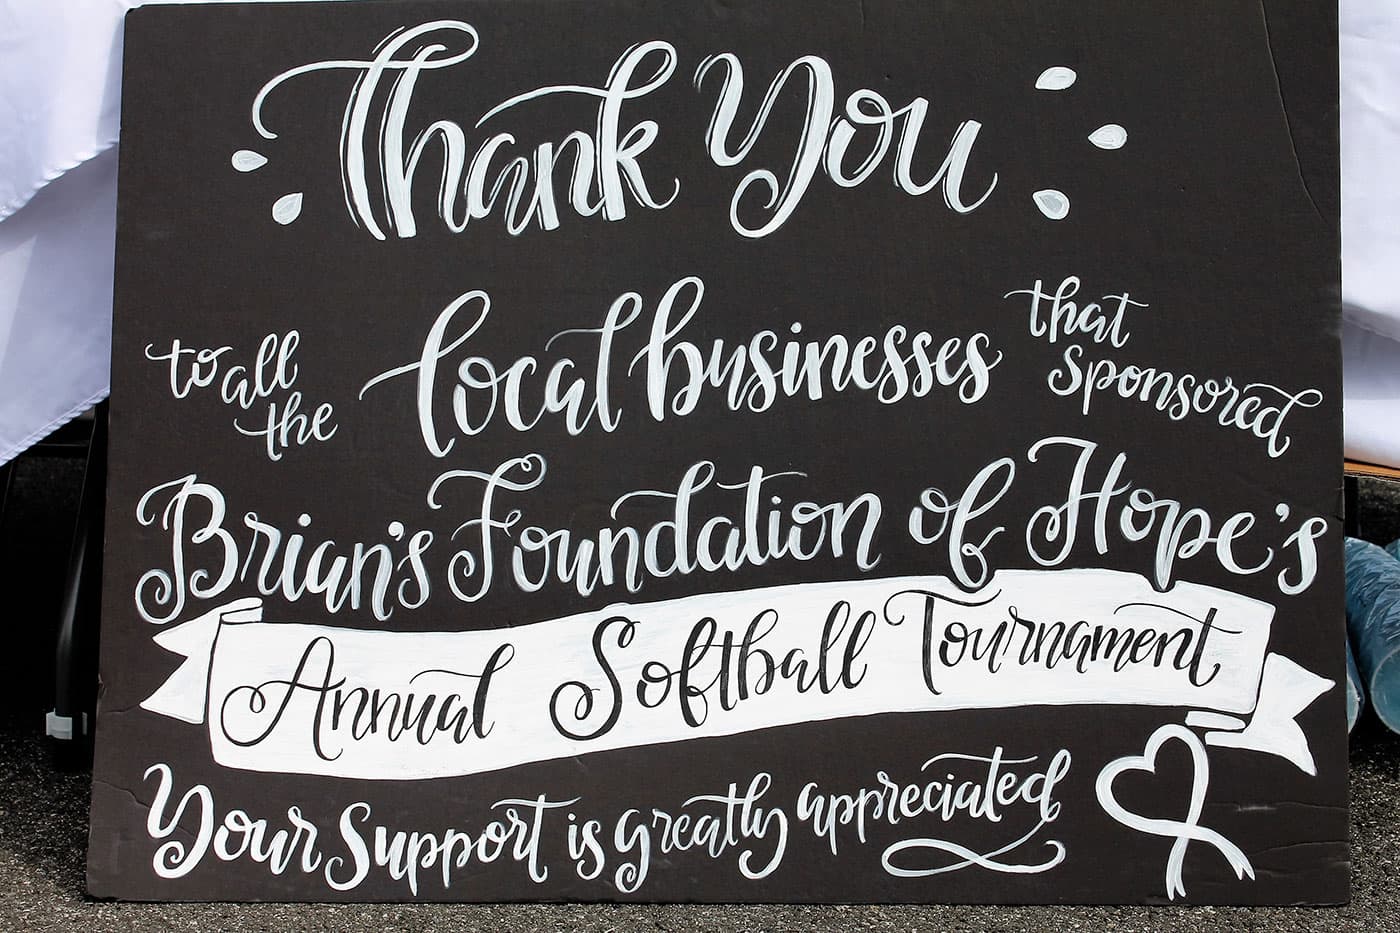 Thank You
to all the local businesses that sponsored
Brian's Foundation of Hope's
Annual Softball Tournament
Your Support is greatly appreciated